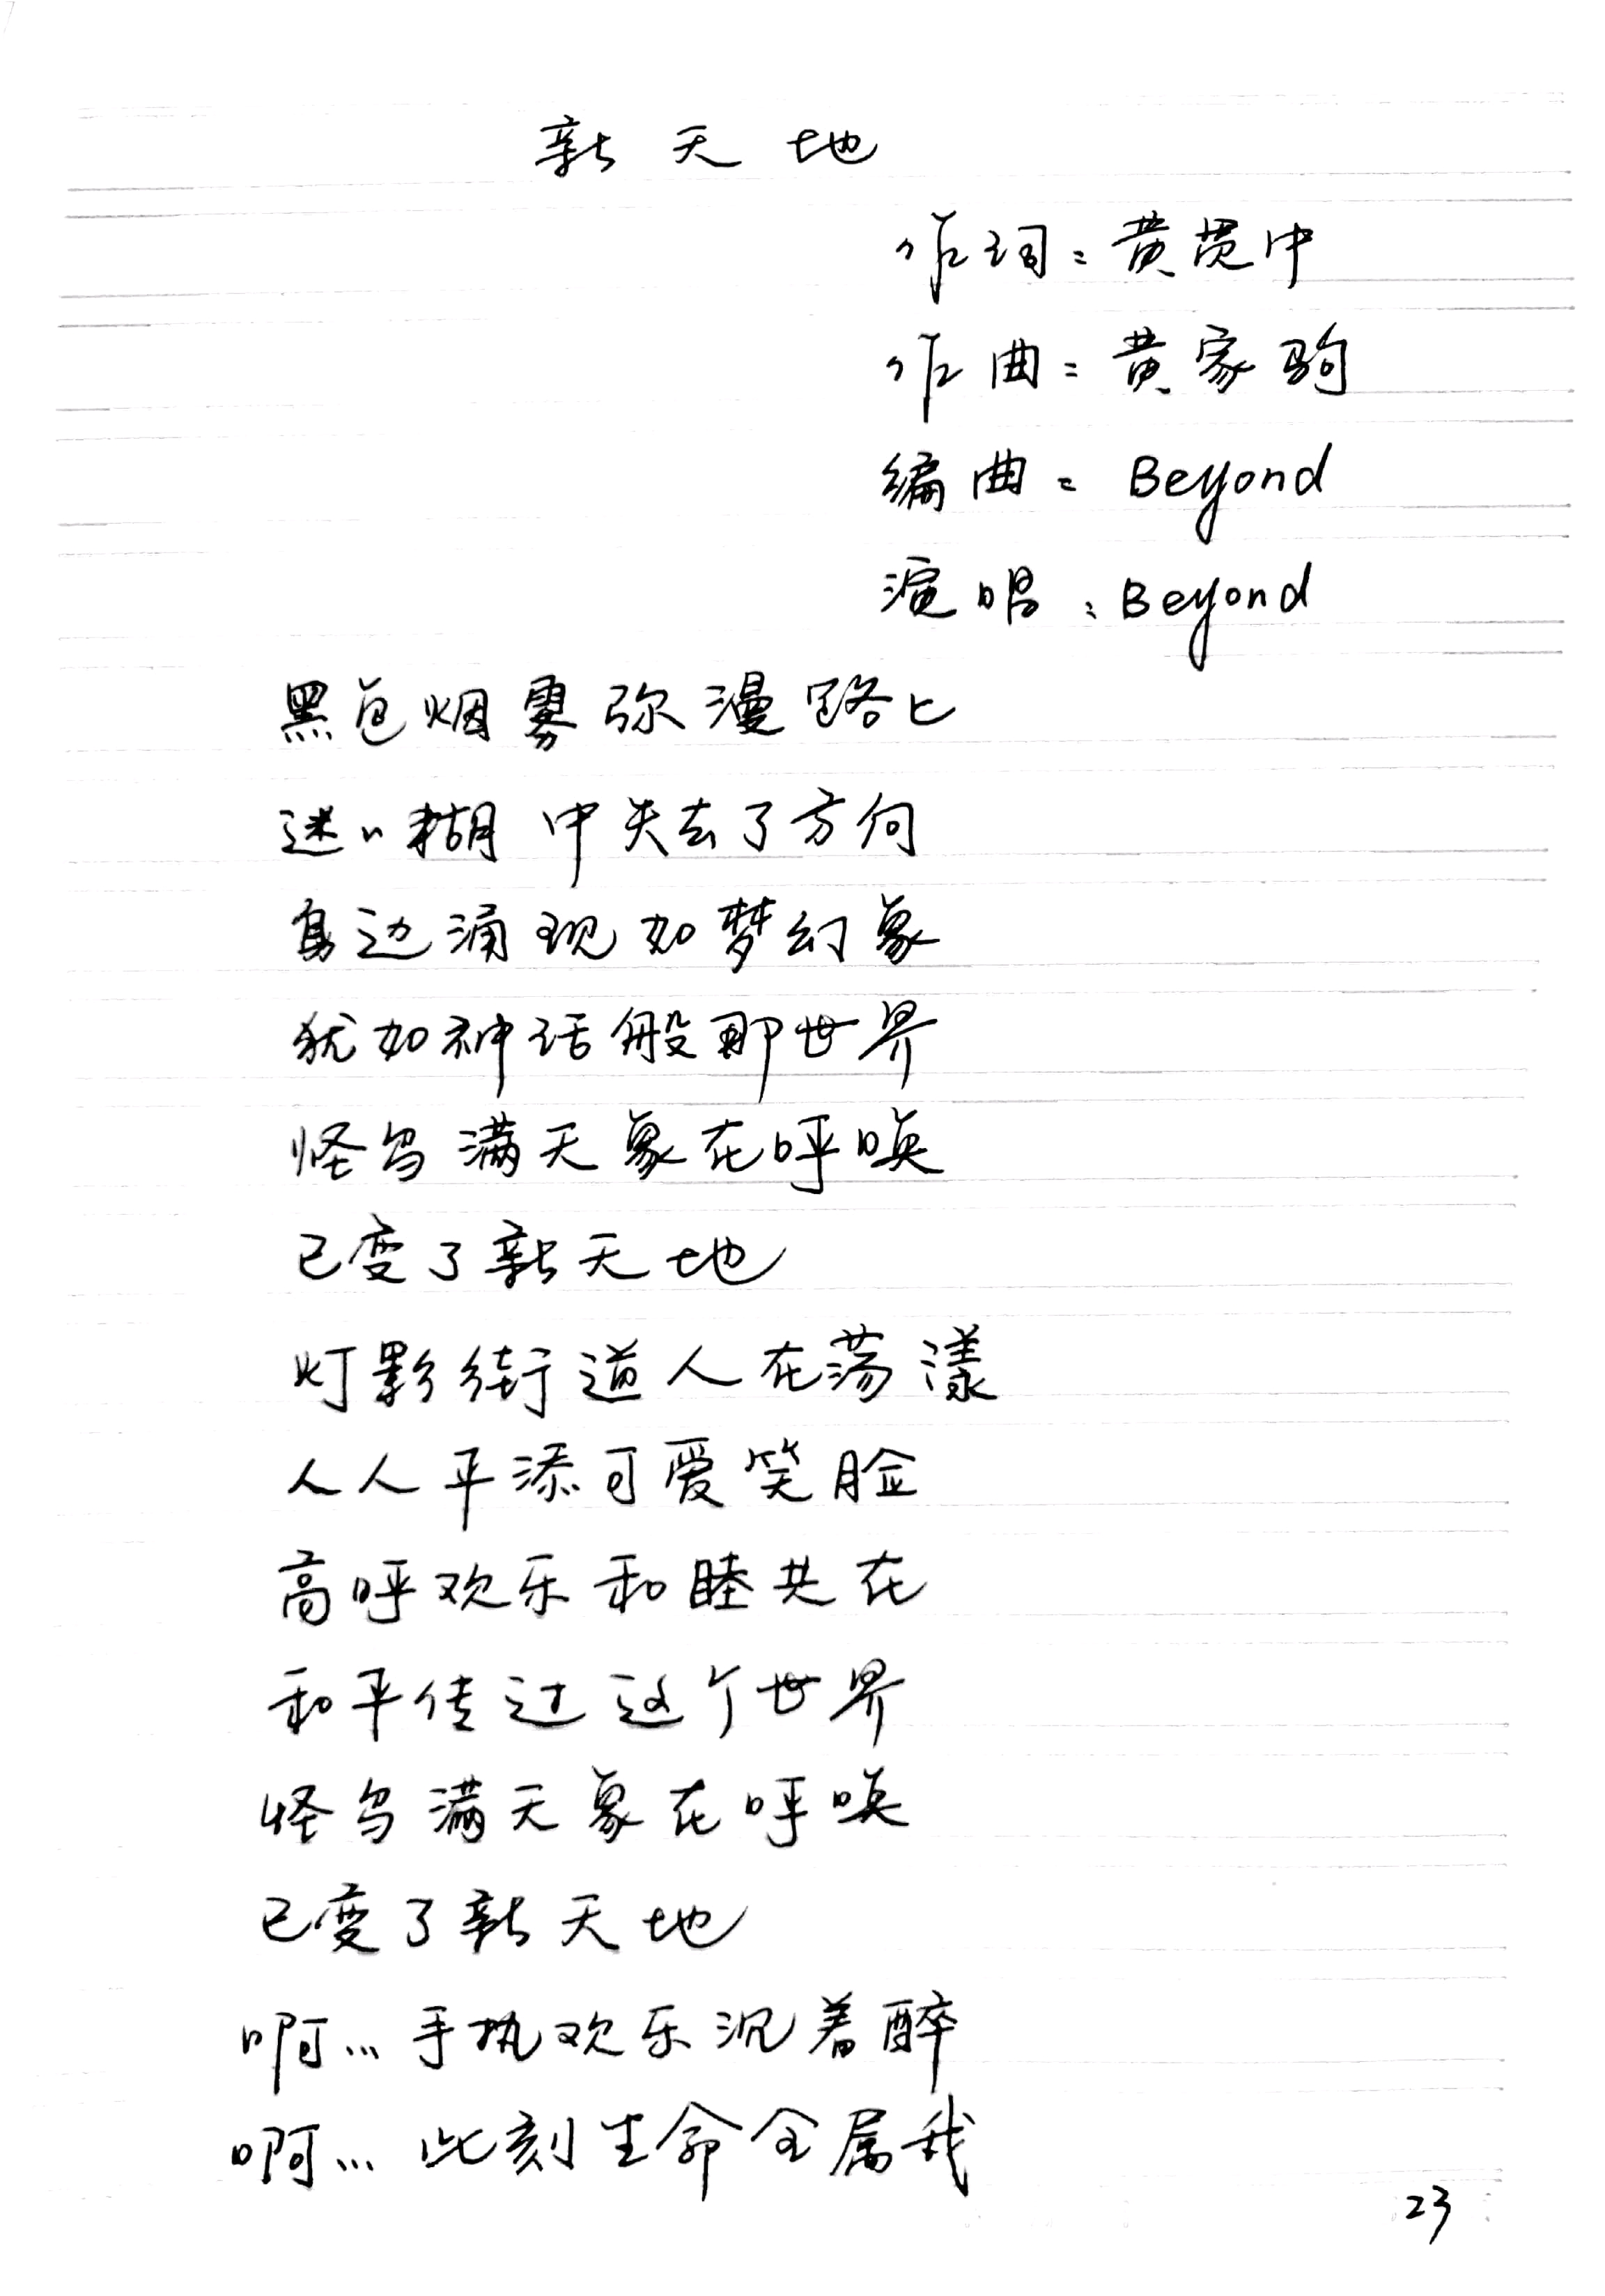 新天地
作词：黄贯中
作曲：黄家驹
编曲：Beyond
演唱：Beyond
黑色烟雾弥漫路上
迷〃糊中失去了方向
身边涌现如梦幻象
犹如神话般那世界
怪鸟满天象在呼唤
已变了新天地
灯影街道人在荡漾
人人平添可爱笑脸
高呼欢乐和睦共在
和平传过这个世界
怪鸟满天象在呼唤
已变了新天地
啊…手执欢乐沉着醉
啊…此刻生命全属我
23